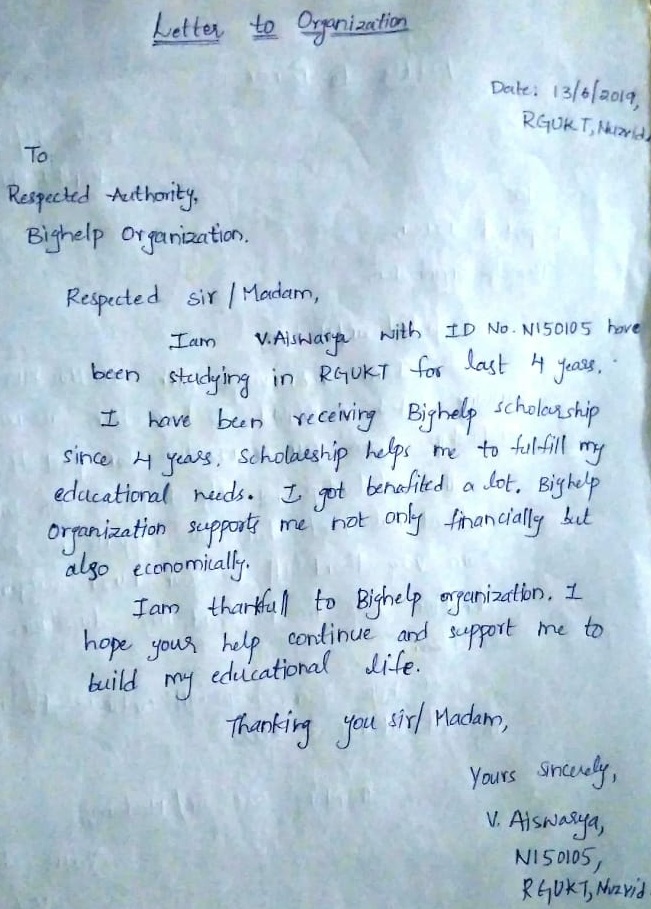 Letter to Organization
Date: 13/6/2019,
RGUKT, Nuzvid.
To
Respected Authority,
Bighelp Organization.
Respected sir / Madam,
Iam V.Aiswarya with ID No. N150105 have
been studying in RGUKT for last 4 years.
I have been receiving Bighelp scholarship
since 4 years. Scholarship helps me to fulfill my
educational needs. I got benafited a lot. Bighelp
Organization supports me not only financially but
also economically.
Iam thankfull to Bighelp organization. I
hope your help continue and support me to
build my educational life.
Thanking you sir/ Madam,
Yours sincerely,
V. Aiswarya,
N150105,
RGUKT, Nuzvid